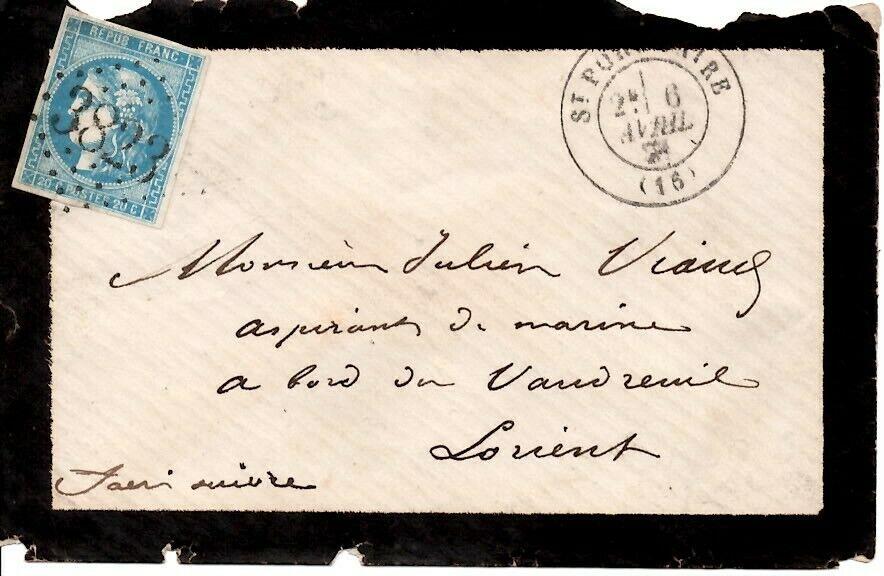 REPUB. FRANC.
3823
20 C POSTES 20 C
2E 6
AVRIL
(16)
Monsieur Julien Viaud
aspirant de marine
a bord du Vaudreuil
Lorient
Faire suivre